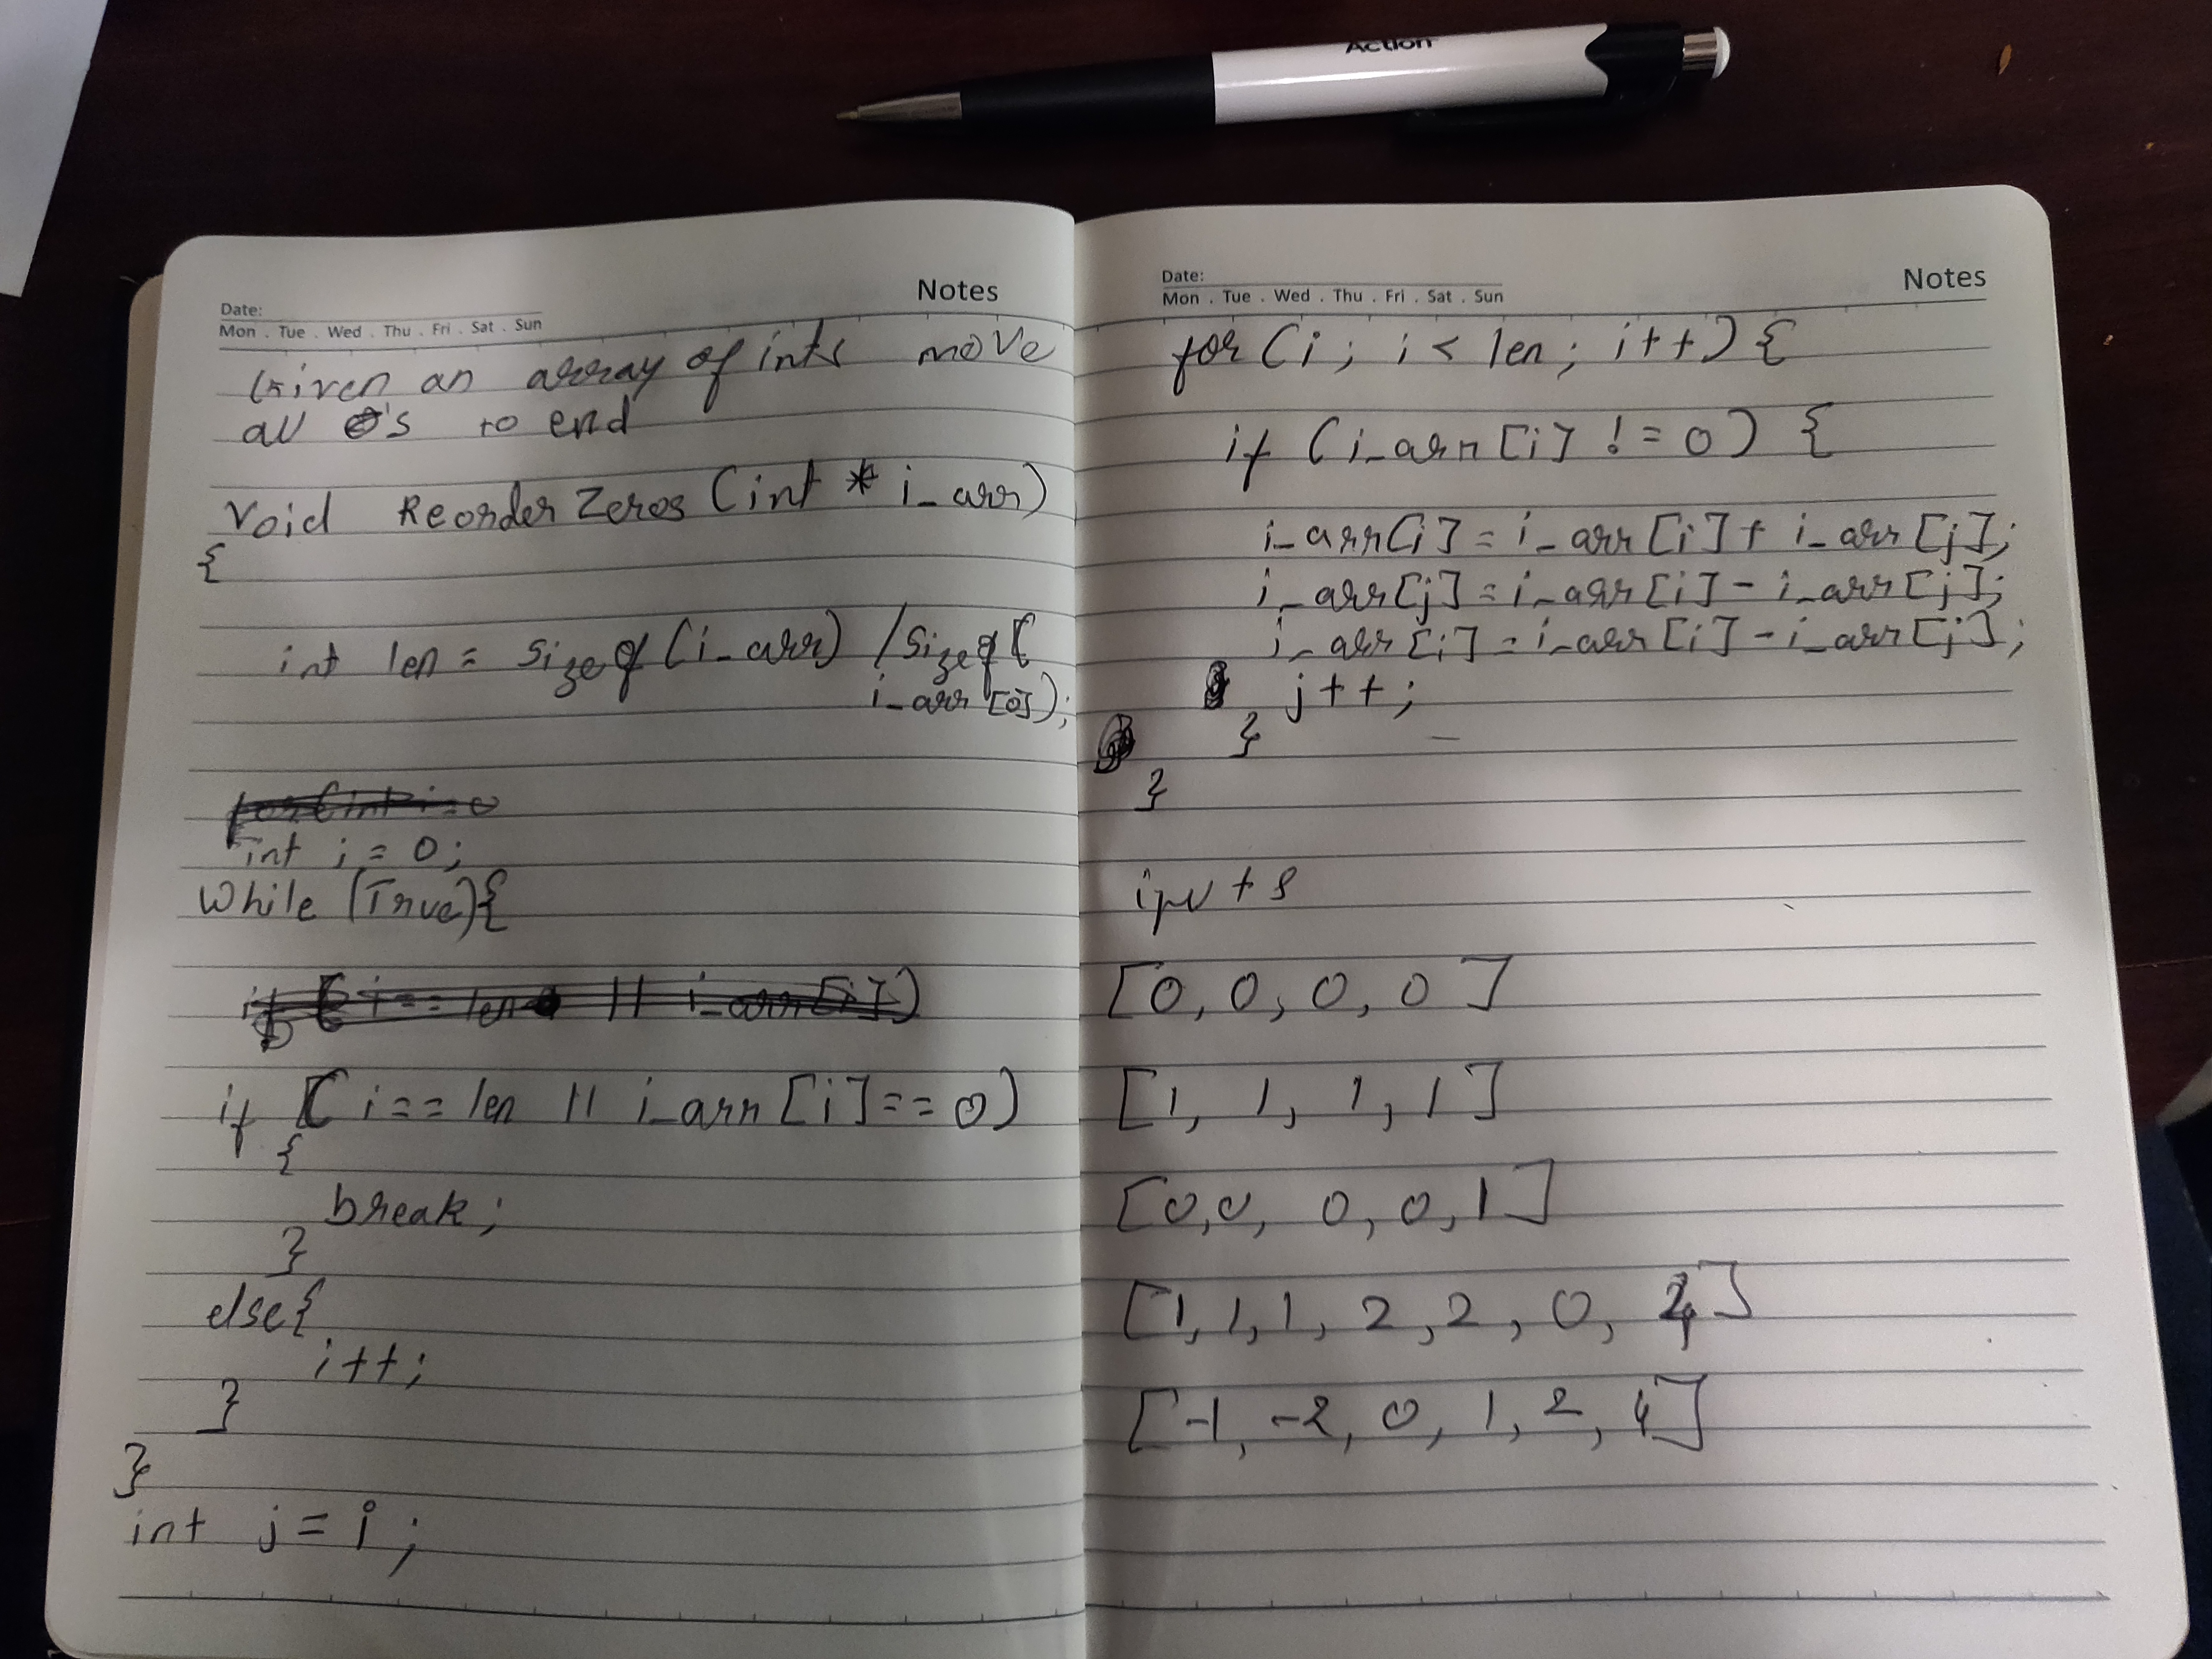 Action
Notes
Date:
Mon . Tue . Wed . Thu . Fri . Sat . Sun
Given an array of ints move
all 0's to end
Void ReorderZeros (int * i_arr)
{
int len = sizeof (i_arr) / sizeof (
i_arr [0]);
for (int i = 0
int i = 0;
While (True) {
if ( i == len || i_arr [i] )
if ( i == len || i_arr [i] == 0 )
{
break ;
}
else {
i++ ;
}
}
int j = i ;
Date:
Mon . Tue . Wed . Thu . Fri . Sat . Sun
Notes
for (i ; i < len ; i++) {
if (i_arr [i] != 0) {
i_arr[i] = i_arr [i] + i_arr [j];
i_arr[j] = i_arr [i] - i_arr [j];
i_arr [i] = i_arr [i] - i_arr [j];
j++ ;
}
}
[0, 0, 0, 0 ]
[1, 1, 1, 1 ]
[0,0, 0, 0, 1 ]
[1, 1, 1, 2, 2, 0, 4 ]
[-1, -2, 0, 1, 2, 4]